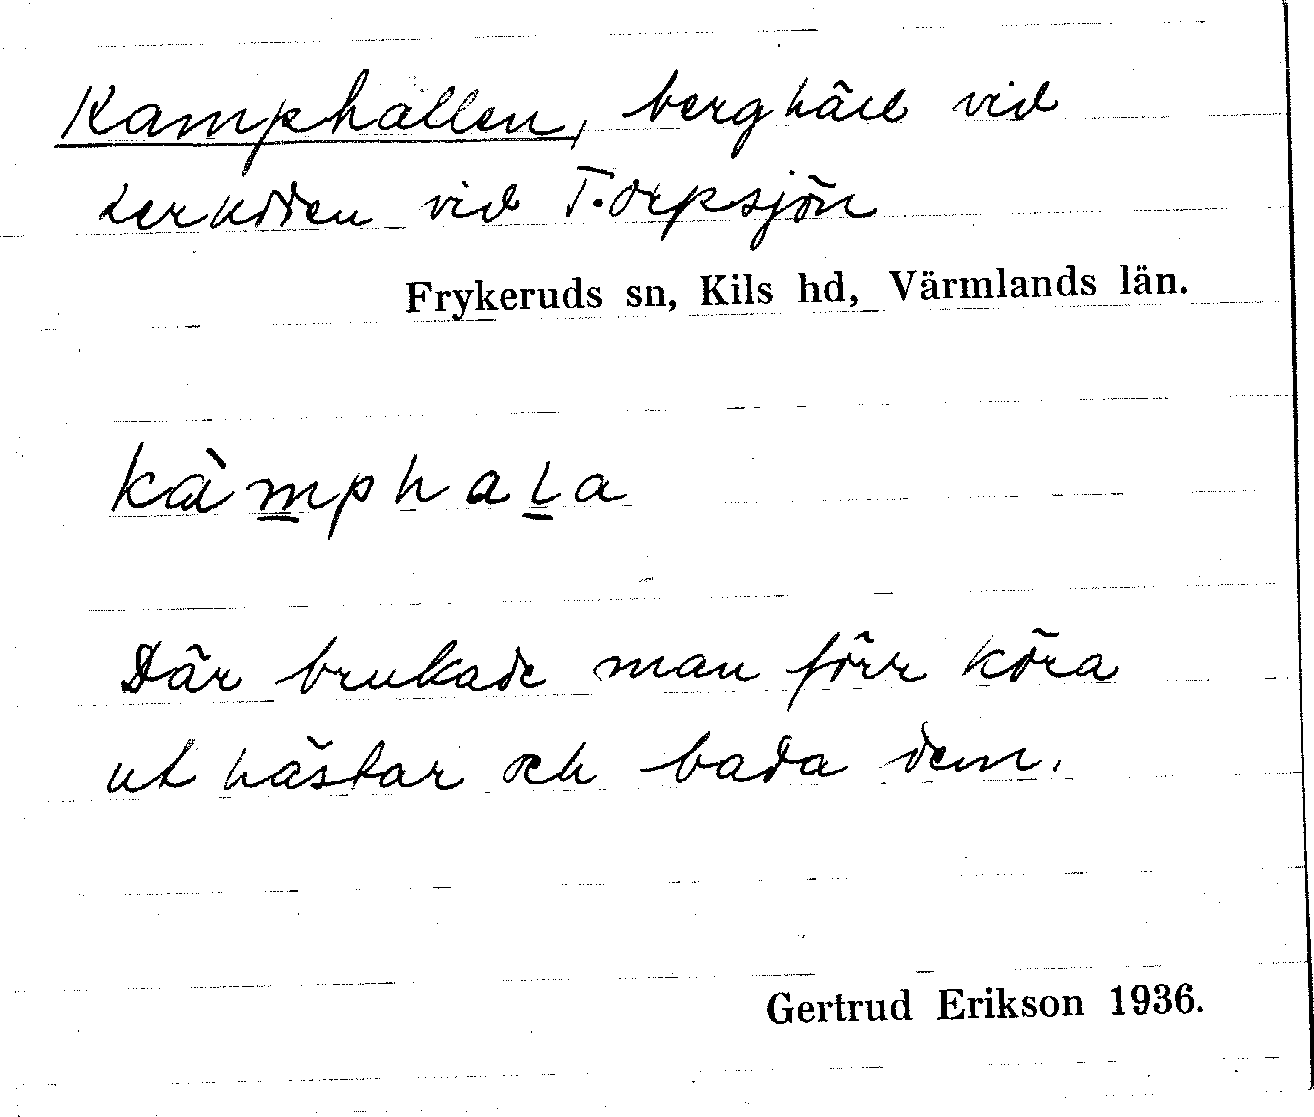 Kamphallen, berghäll vid
Lerudden vid Torpsjön
Frykeruds sn, Kils hd, Värmlands län.
kàmphala
Där brukade man förr köra
ut hästar och bada dem.
Gertrud Erikson 1936.